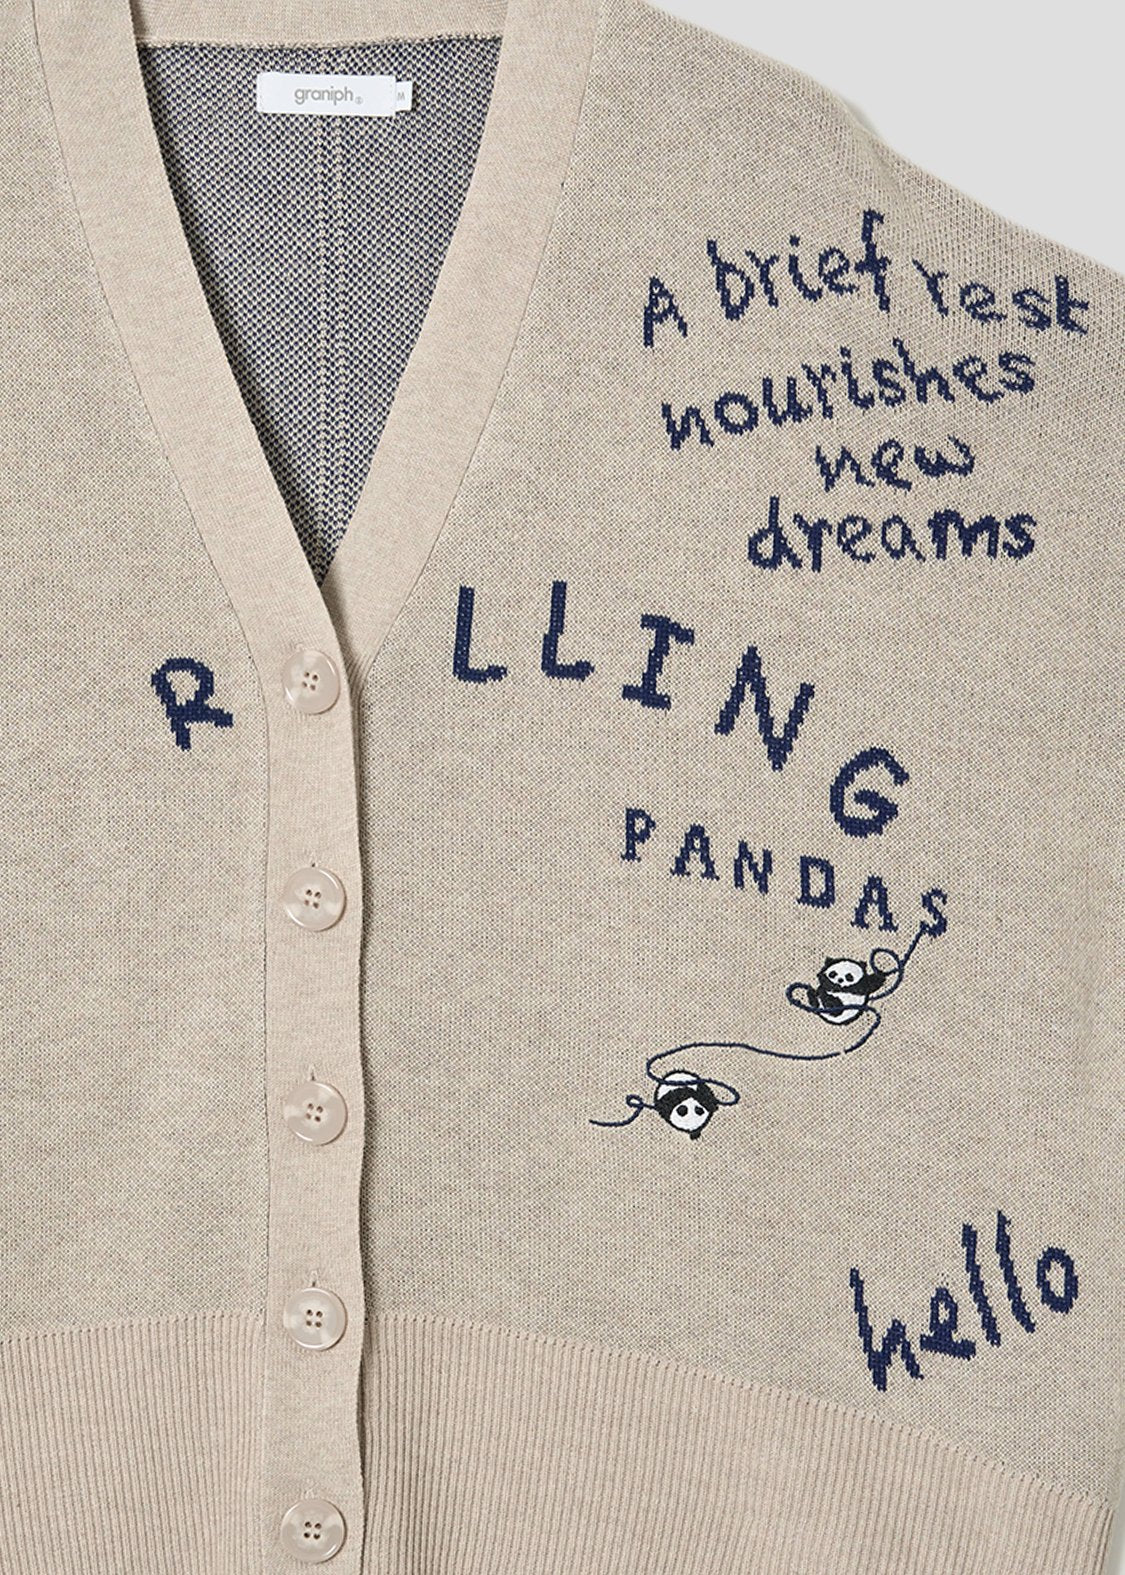 graniph
M
A brief rest
nourishes
new
dreams
R LLING
PANDAS
hello